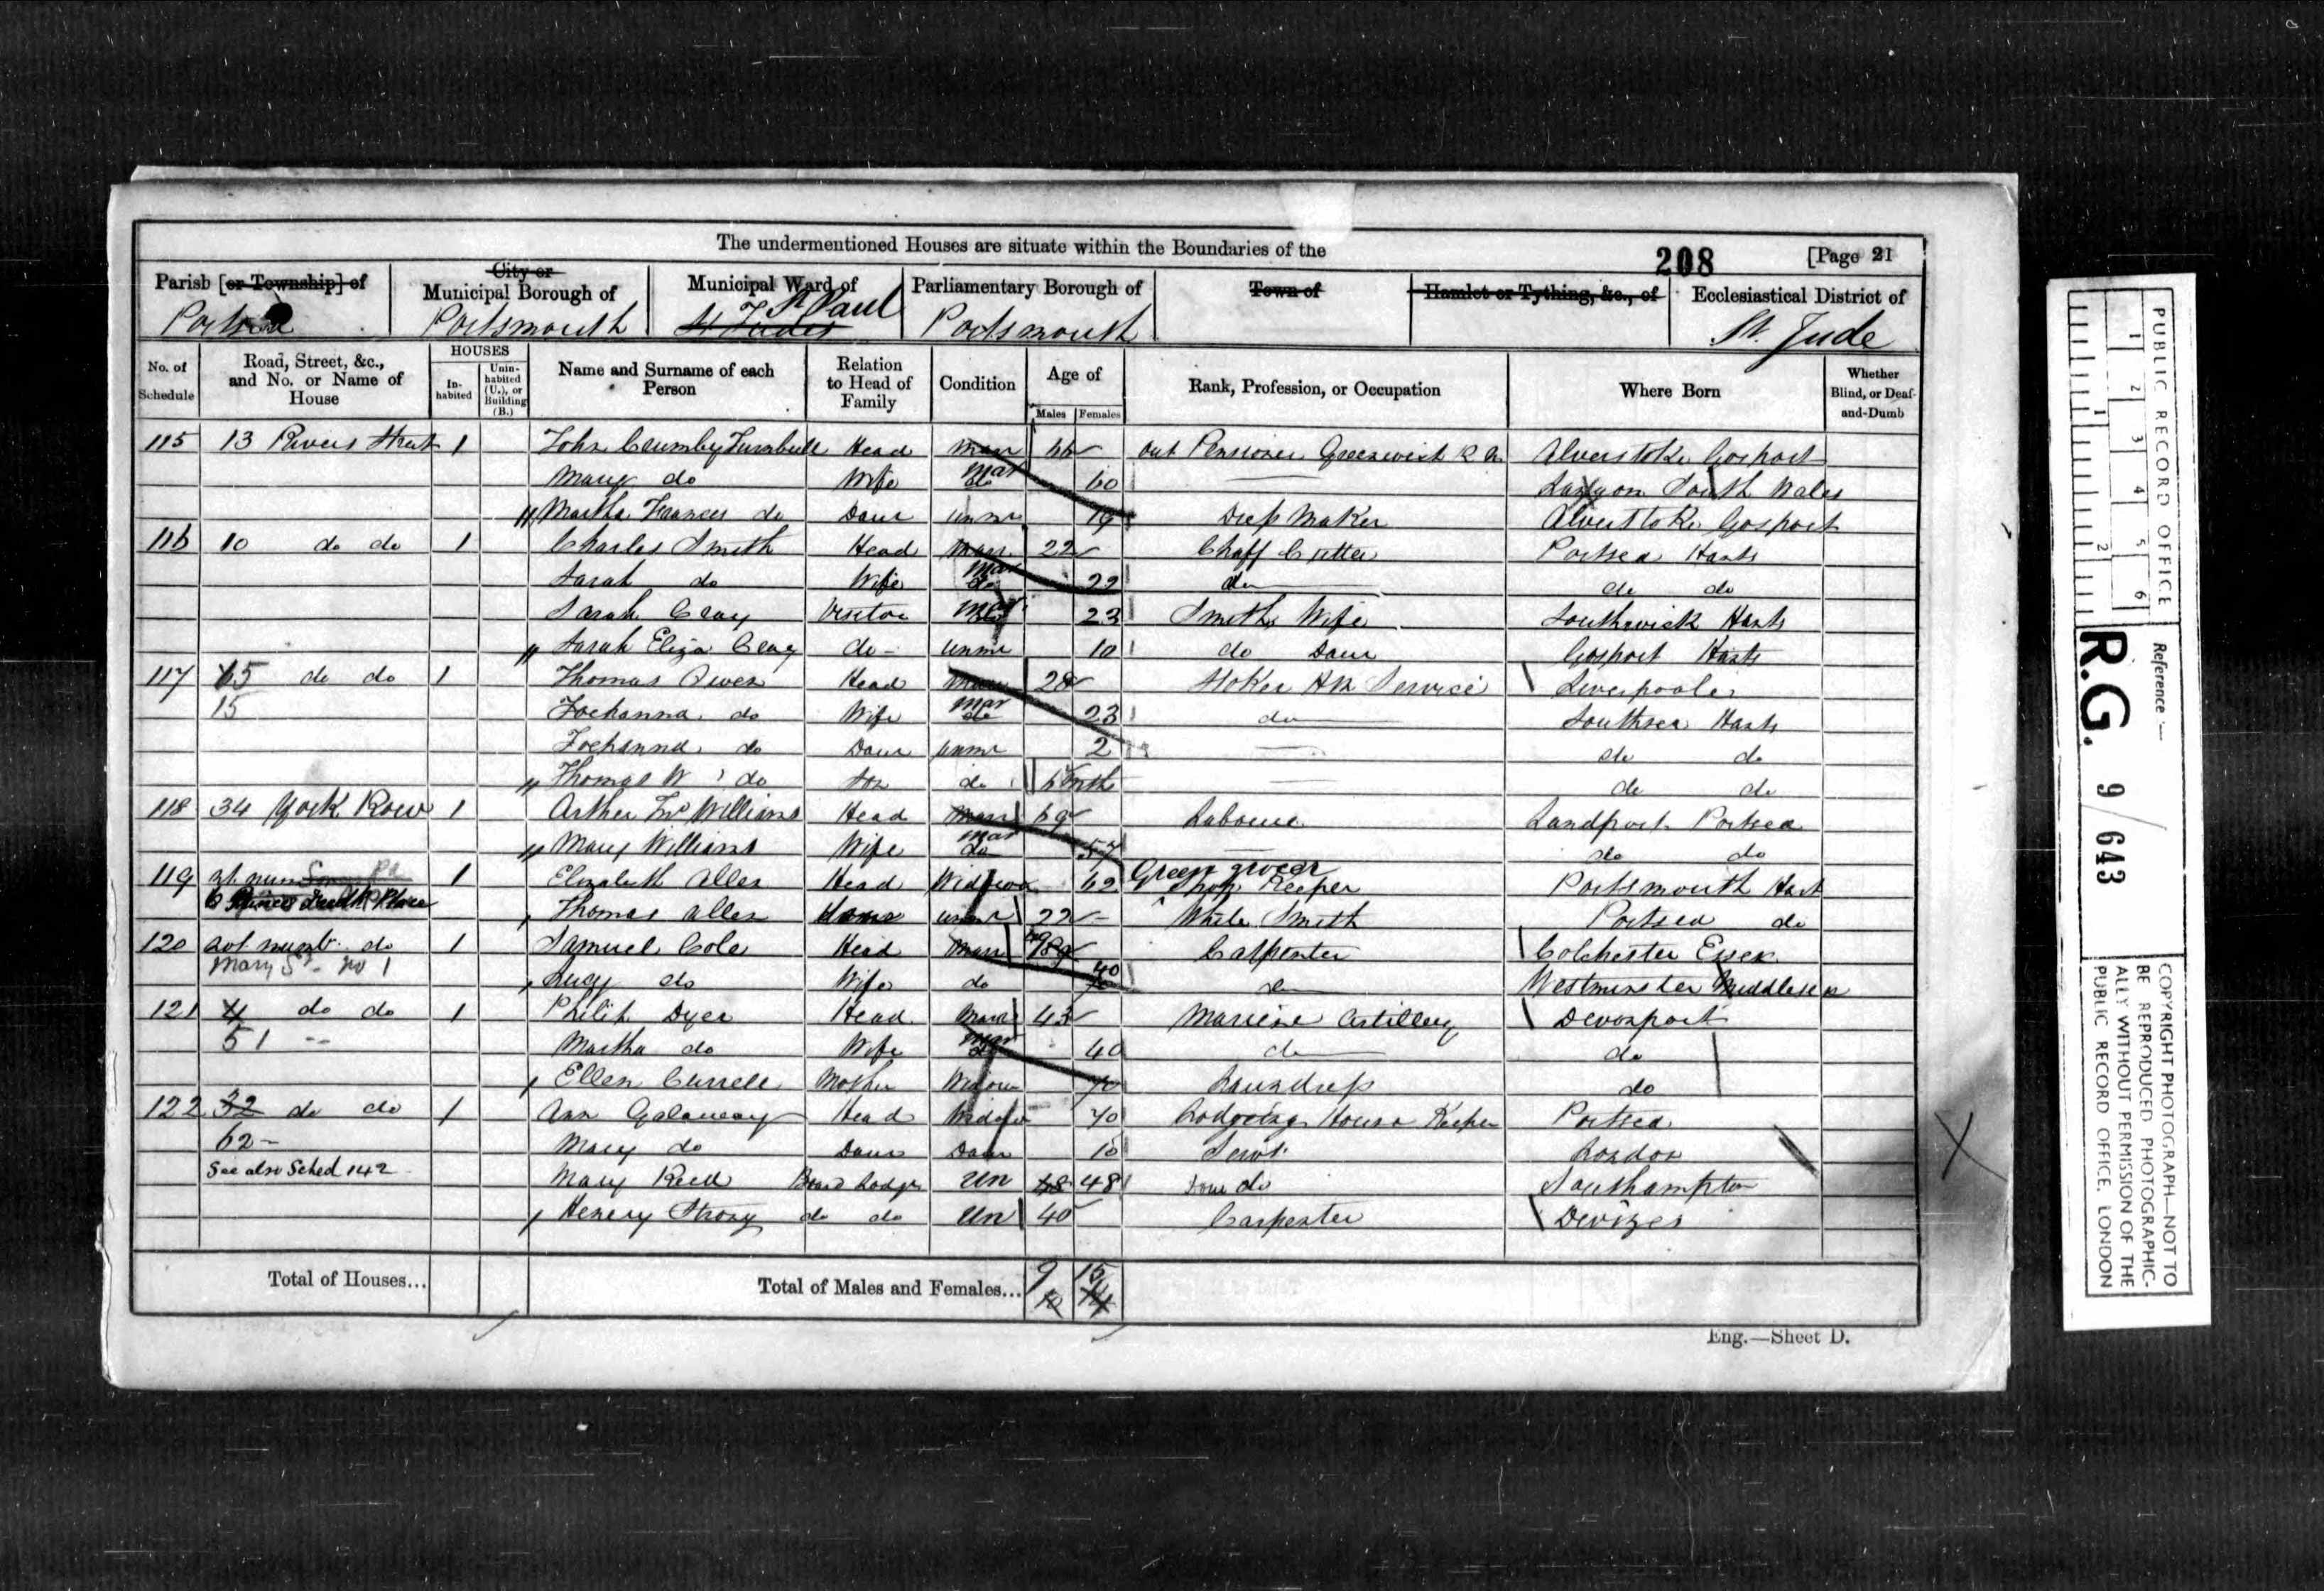 The undermentioned Houses are situate within the Boundaries of the
208 [Page 21
Parish [or Township] of City or Municipal Borough of Municipal Ward of Parliamentary Borough of Town of Hamlet or Tything, &c., of Ecclesiastical District of
Portsea Portsmouth St Judes St Paul Portsmouth St. Jude
No. of Schedule Road, Street, &c., and No. or Name of House HOUSES Inhabited Uninhabited (U.), or Building (B.) Name and Surname of each Person Relation to Head of Family Condition Age of Males Females Rank, Profession, or Occupation Where Born Whether Blind, or Deaf-and-Dumb
115 13 Rivers Street 1 John Crumby Turnbull Head Marr 66 out Pensioner Greenwich Alverstoke Gosport
Mary do Wife Mar do 60 South Wales
Martha Frances do Daur unmr 19 Dress Maker Alverstoke Gosport
116 10 do do 1 Charles Smith Head Marr 22 Chaff Cutter Portsea Hants
Sarah do Wife Mar do 22 do do do
Sarah Cray Visitor Mar 23 Smiths Wife Southwick Hants
Sarah Eliza Cray do unmr 10 do Daur Gosport Hants
117 65 do do 1 Thomas Owen Head Marr 28 Stoker HM Service Liverpool
15 Joehanna do Wife Mar do 23 do Southsea Hants
Joehanna do Daur unmr 2 do do
Thomas W do Son do 6 Mths do do
118 34 York Row 1 Arther Williams Head Marr 69 Labourer Landport Portsea
Mary Williams Wife Mar do 57 do do
119 1 Elizabeth Allen Head Widow 62 Green grocer Shop Keeper Portsmouth Hant
Thomas Allen unmr 22 White Smith Portsea do
120 not numb. do 1 Samuel Cole Head Marr Carpenter Colchester Essex
Mary St no 1 Lucy do Wife do 40 do Westminster Middlesex
121 4 do do 1 Philip Dyer Head Marr 43 Mariene Artillery Devonport
51 Martha do Wife Mar do 40 do do
Ellen Currell Mother Widow 70 Laundress do
122 32 do do 1 Ann Galaway Head Widow 70 Lodgeing House Keeper Portsea
62 Mary do Daur Daur 10 Servt London
See also Sched 142 Mary Reed Board Lodger Un 48 48 do Southampton
Henery Strong do do Un 40 Carpenter Devizes
Total of Houses... Total of Males and Females... 9 15
10 14
Eng.—Sheet D.
PUBLIC RECORD OFFICE
1 2 3 4 5 6
1 2
Reference:—
R.G. 9/643
COPYRIGHT PHOTOGRAPH—NOT TO
BE REPRODUCED PHOTOGRAPHIC-
ALLY WITHOUT PERMISSION OF THE
PUBLIC RECORD OFFICE, LONDON